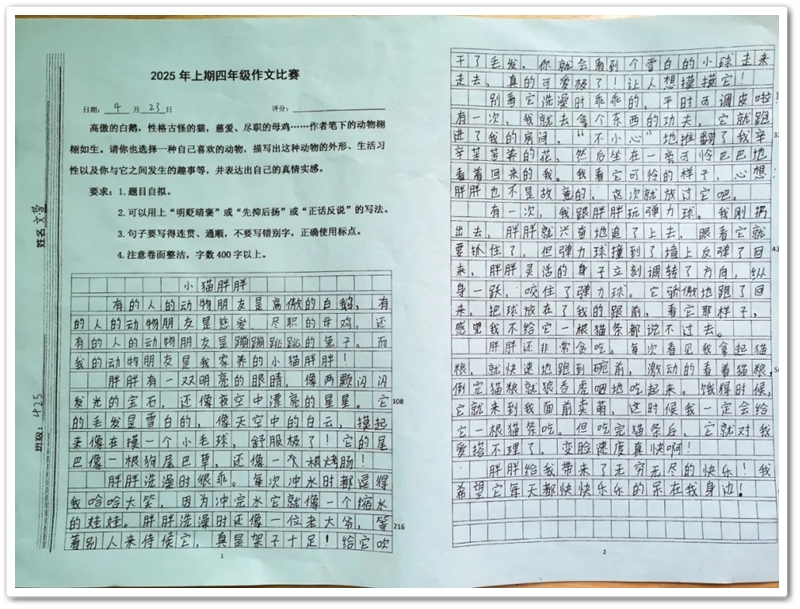 2025年上期四年级作文比赛
日期：4月23日 评分：
高傲的白鹅，性格古怪的猫，慈爱、尽职的母鸡……作者笔下的动物栩
栩如生。请你也选择一种自己喜欢的动物，描写出这种动物的外形、生活习
性以及你与它之间发生的趣事等，并表达出自己的真情实感。
要求：1.题目自拟。
2.可以用上“明贬暗褒”或“先抑后扬”或“正话反说”的写法。
3.句子要写得连贯、通顺，不要写错别字，正确使用标点。
4.注意卷面整洁，字数400字以上。
姓名
班级：425
小猫胖胖
有的人的动物朋友是高傲的白鹅，有
的人的动物朋友是慈爱、尽职的母鸡，还
有的人的动物朋友是蹦蹦跳跳的兔子。而
我的动物朋友是我家养的小猫胖胖！
胖胖有一双明亮的眼睛，像两颗闪闪
发光的宝石，还像夜空中漂亮的星星。它
108
的毛发是雪白的，像天空中的白云，摸起
来像在摸一个小毛球，舒服极了！它的尾
巴像一根狗尾巴草，还像一个根烤肠！
胖胖洗澡时很乖。每次冲水时都逗得
我哈哈大笑，因为冲完水它就像一个缩水
的娃娃。胖胖洗澡时还像一位老大爷，等
216
着别人来侍候它，真是架子十足！给它吹
1
干了毛发，你就会看到个雪白的小球走来
走去，真的可爱极了！让人想摸摸它！
别看它洗澡时乖乖的，平时可调皮啦！
有一次，我就去拿个东西的功夫，它就跑
进了我的房间，“不小心”地推翻了我辛
辛苦苦养的花，然后坐在一旁可怜巴巴地
看着回来的我。我看它可怜的样子，心想：
胖胖也不是故意的，这次就放过它吧。
有一次，我跟胖胖玩弹力球。我刚扔
出去，胖胖就兴奋地追了上去，眼看它就
要抓住了，但弹力球撞到了墙上反弹了回
来，胖胖灵活的身子立刻调转了方向，纵
身一跃，咬住了弹力球。它骄傲地跑了回
来，把球放在了我的跟前，看它那样子，
感觉我不给它一根猫条都说不过去。
胖胖还非常贪吃。每次看见我拿起猫
粮，就快速地跑到碗前，激动的看着猫粮，
倒完猫粮就狼吞虎咽地吃起来。饿得时候，
它就来到我面前卖萌，这时候我一定会给
它一根猫条吃。但吃完猫条后，它就对我
爱搭不理了，变脸速度真快啊！
胖胖给我带来了无穷无尽的快乐！我
希望它每天都快快乐乐的呆在我身边！
2